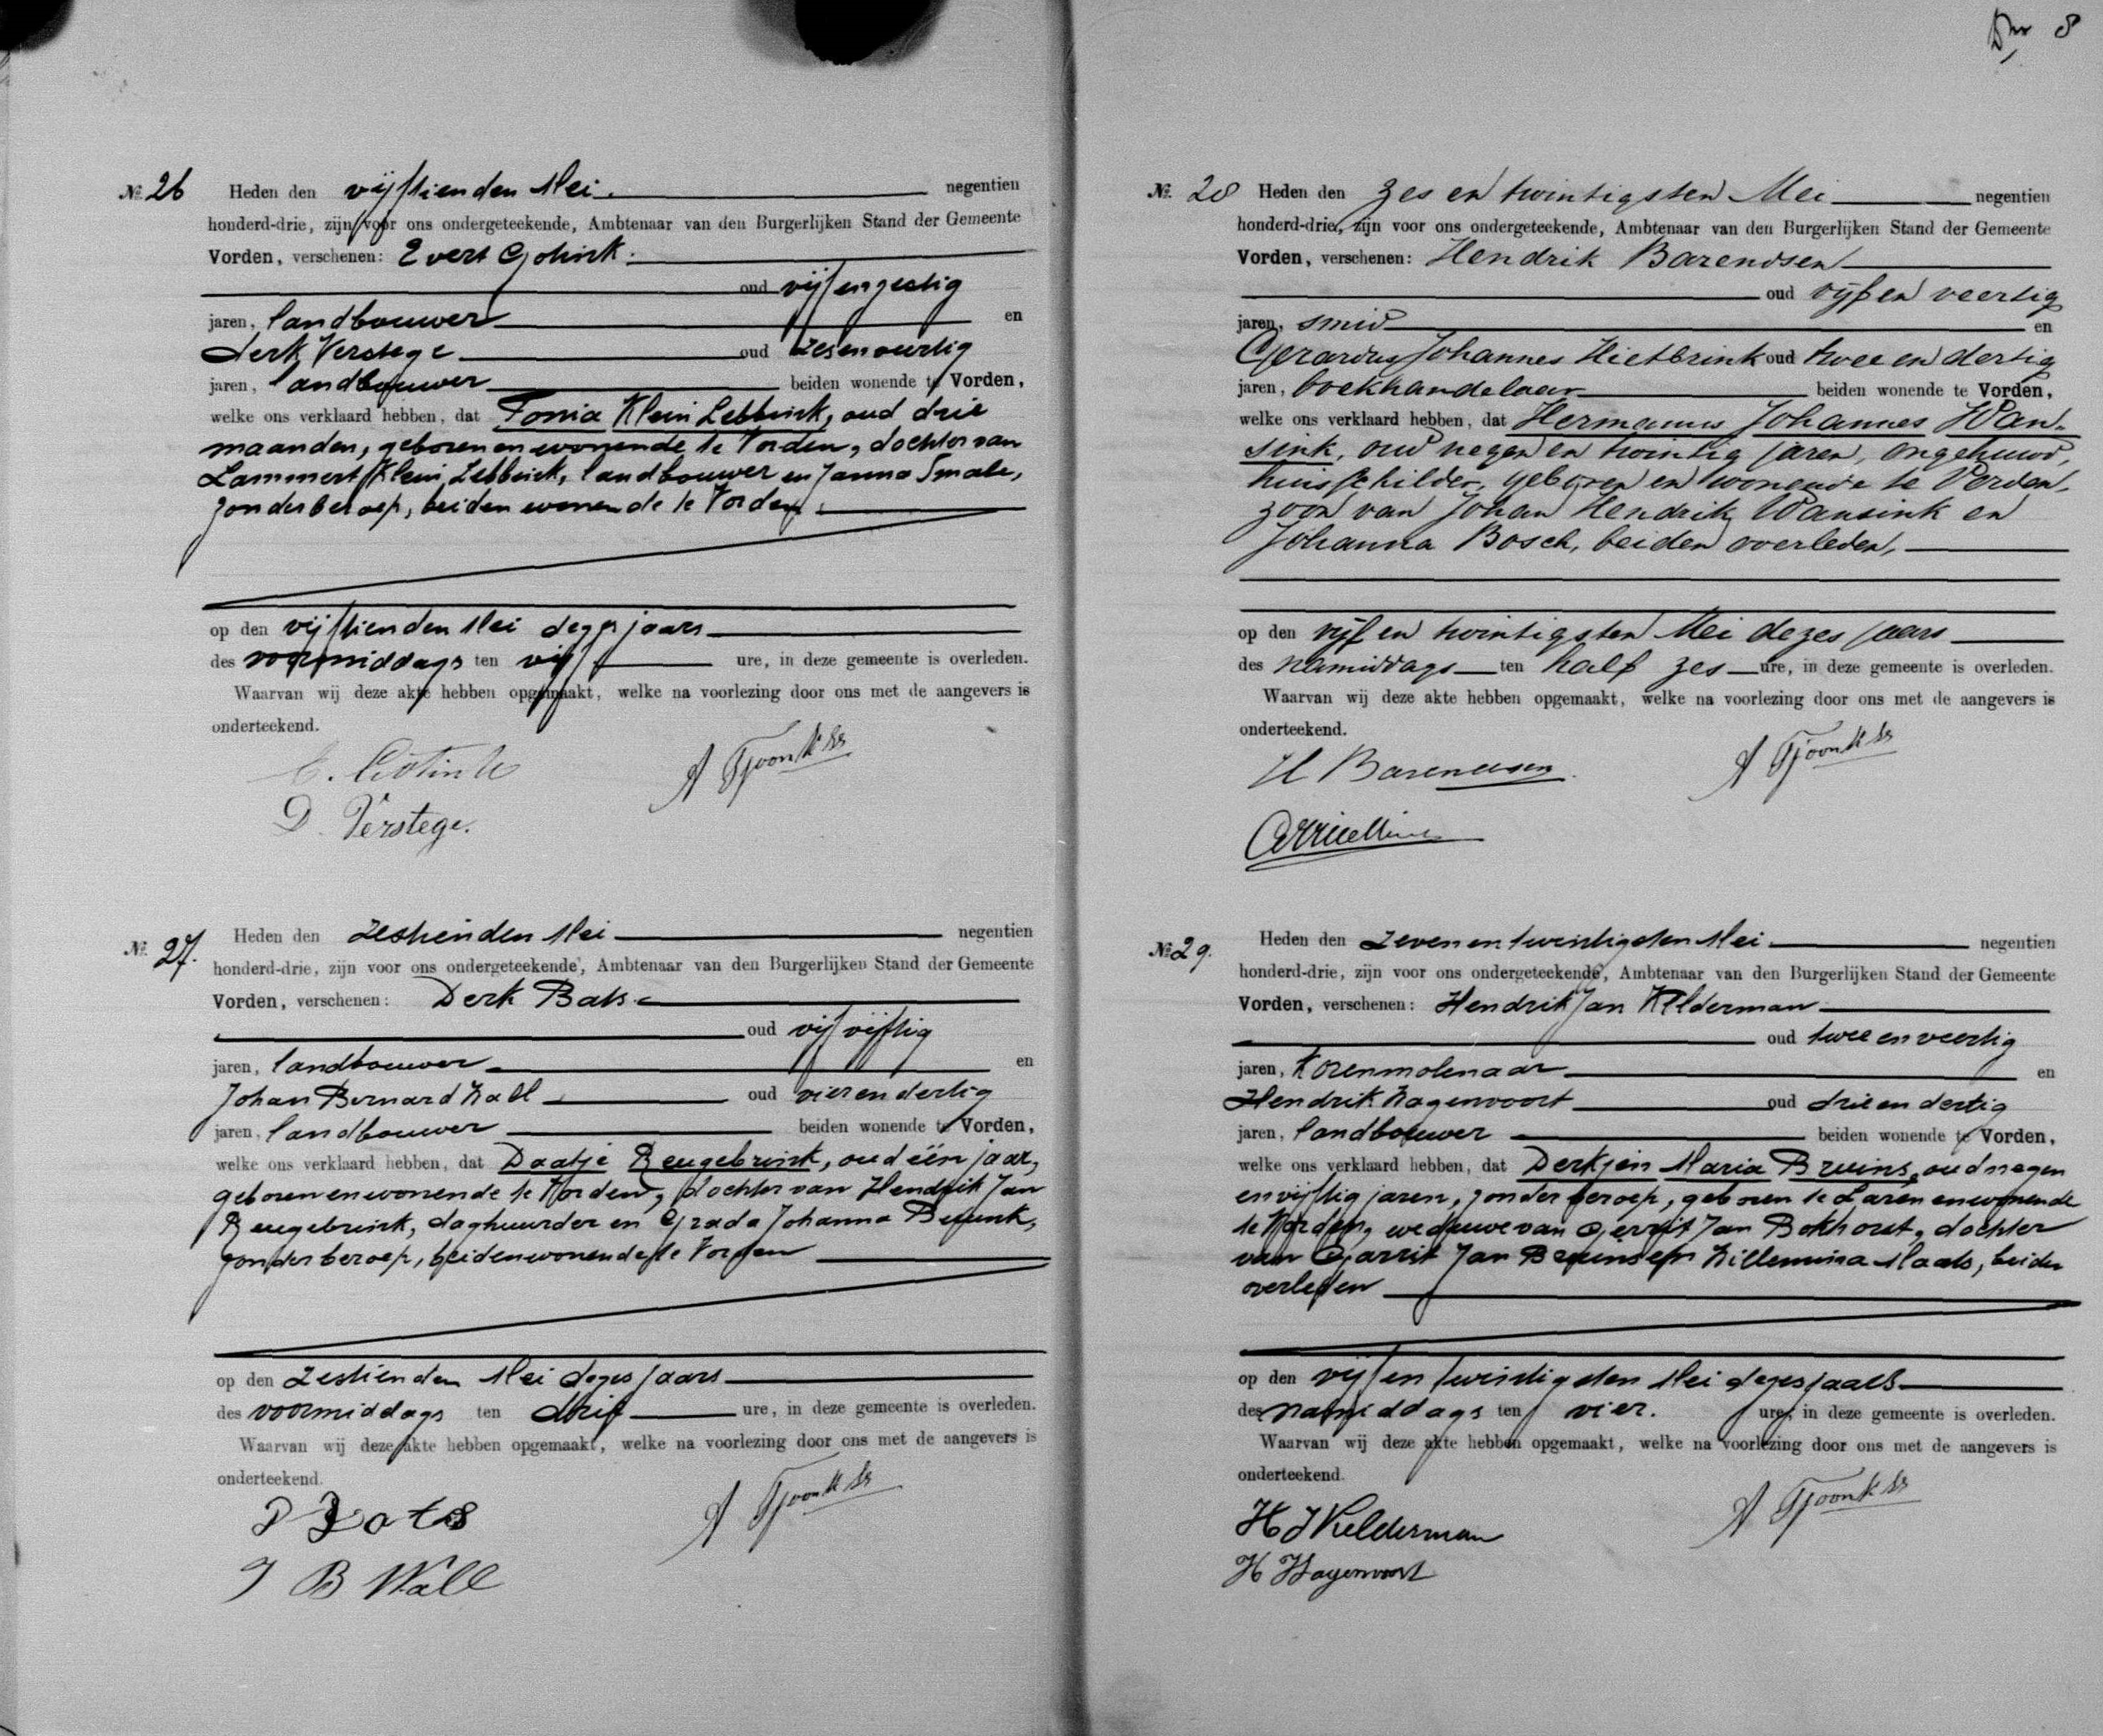 No. 26 Heden den vijftienden Mei. negentien
honderd-drie, zijn voor ons ondergeteekende, Ambtenaar van den Burgerlijken Stand der Gemeente
Vorden, verschenen: Evert Gotink.
oud vijfenzestig
jaren, landbouwer en
Derk Verstege oud zesenveertig
jaren, landbouwer beiden wonende te Vorden,
welke ons verklaard hebben, dat Tonia Klein Lebbink, oud drie
maanden, geboren en wonende te Vorden, dochter van
Lammert Klein Lebbink, landbouwer en Janna Smale,
zonder beroep, beiden wonende te Vorden.
op den vijftienden Mei dezes jaars
des voormiddags ten vijf ure, in deze gemeente is overleden.
Waarvan wij deze akte hebben opgemaakt, welke na voorlezing door ons met de aangevers is
onderteekend.
E. Gotink
D. Verstege.
No. 27. Heden den zestienden Mei negentien
honderd-drie, zijn voor ons ondergeteekende, Ambtenaar van den Burgerlijken Stand der Gemeente
Vorden, verschenen: Derk Bats
oud vijfvijftig
jaren, landbouwer en
Johan Bernard Wall oud vierendertig
jaren, landbouwer beiden wonende te Vorden,
welke ons verklaard hebben, dat Daatje Reugebrink, oud één jaar,
geboren en wonende te Vorden, dochter van Hendrik Jan
Reugebrink, daghuurder en Grada Johanna
zonder beroep, beiden wonende te Vorden
op den zestienden Mei dezes jaars
des voormiddags ten drie ure, in deze gemeente is overleden.
Waarvan wij deze akte hebben opgemaakt, welke na voorlezing door ons met de aangevers is
onderteekend.
D Bats
J B Wall
8
No. 28 Heden den zes en twintigsten Mei negentien
honderd-drie, zijn voor ons ondergeteekende, Ambtenaar van den Burgerlijken Stand der Gemeente
Vorden, verschenen: Hendrik Barendsen
oud vijf en veertig
jaren, smid en
Gerardus Johannes Hietbrink oud twee en dertig
jaren, boekhandelaar beiden wonende te Vorden,
welke ons verklaard hebben, dat Hermanus Johannes Wan-
sink, oud negen en twintig jaren, ongehuwd,
huisschilder, geboren en wonende te Vorden,
zoon van Johan Hendrik Wansink en
Johanna Bosch, beiden overleden,
op den vijf en twintigsten Mei dezes jaars
des namiddags ten half zes ure, in deze gemeente is overleden.
Waarvan wij deze akte hebben opgemaakt, welke na voorlezing door ons met de aangevers is
onderteekend.
H Barendsen
No. 29. Heden den zevenentwintigsten Mei negentien
honderd-drie, zijn voor ons ondergeteekende, Ambtenaar van den Burgerlijken Stand der Gemeente
Vorden, verschenen: Hendrik Jan Kelderman
oud tweeenveertig
jaren, Korenmolenaar en
Hendrik Wagenvoort oud drieendertig
jaren, landbouwer beiden wonende te Vorden,
welke ons verklaard hebben, dat Derkjen Maria Bruins, oud negen
envijftig jaren, zonder beroep, geboren te Laren en wonende
te Vorden, weduwe van Gerrit Jan Bokhorst, dochter
van Garrit Jan Bruins en Willemina Maats, beiden
overleden
op den vijfentwintigsten Mei dezes jaars
des namiddags ten vier. ure, in deze gemeente is overleden.
Waarvan wij deze akte hebben opgemaakt, welke na voorlezing door ons met de aangevers is
onderteekend.
H J Kelderman
H Wagenvoort